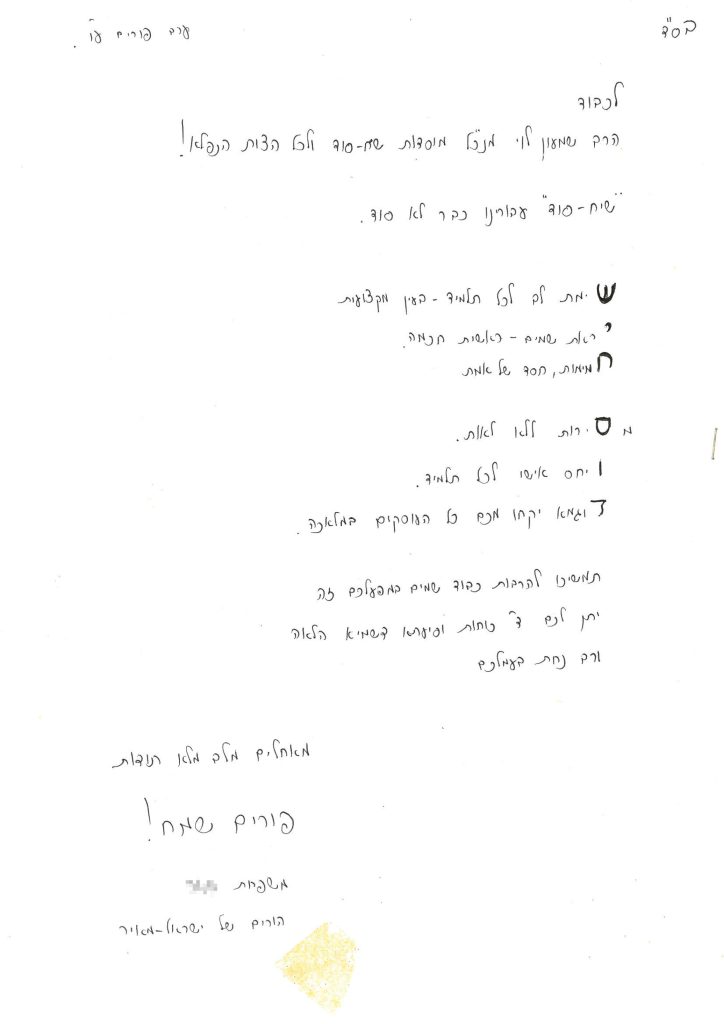 בס"ד
ערב פורים ע"ו.
לכבוד
הרב שמעון לוי מנכ"ל מוסדות שיח-סוד ולכל הצוות הנפלא!
"שיח-סוד" עבורינו כבר לא סוד.
שימת לב לכל תלמיד - בעין מקצועית
יראת שמים - ראשית חכמה.
חמימות, חסד של אמת
מסירות ללא לאות.
ויחס אישי לכל תלמיד.
דוגמא יקחו מכם כל העוסקים במלאכה.
תמשיכו להרבות כבוד שמים במפעלכם זה
יתן לכם ד' כוחות וסיעתא דשמיא הלאה
ורב נחת בעמלכם
מאחלים מלב מלא תודות
פורים שמח!
משפחת
הורים של ישראל-מאיר